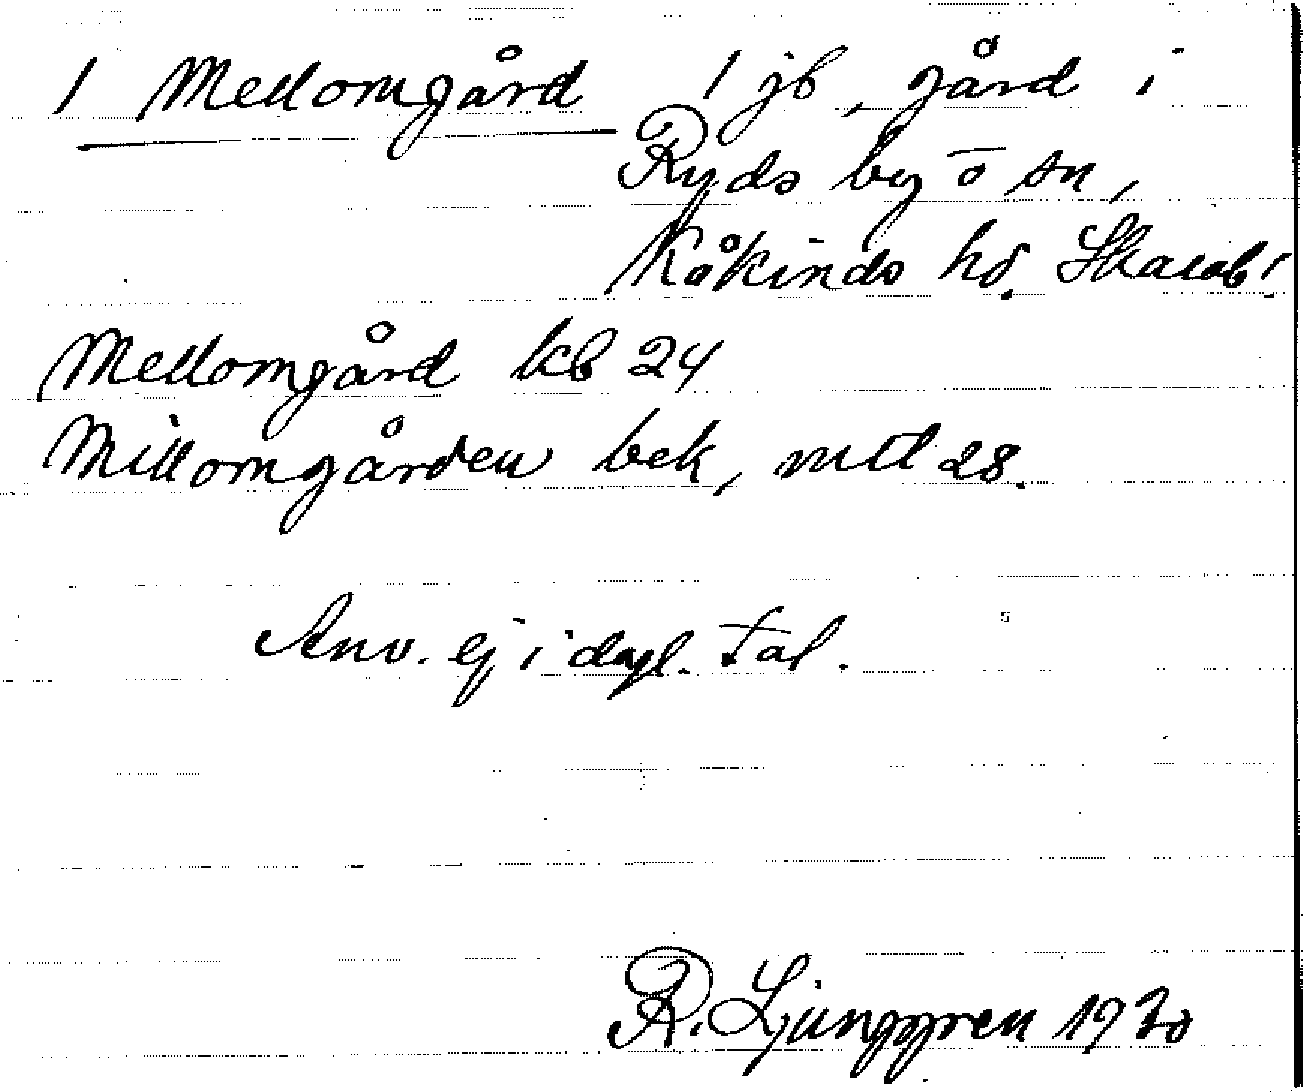 1 Mellomgård 1 jb, gård i
Ryds by o sn,
Kåkinds hd. Skarab.
Mellomgård kb 24
Millomgården bek, mtl 28.
Anv. ej i dagl. tal.
R. Ljunggren 1930